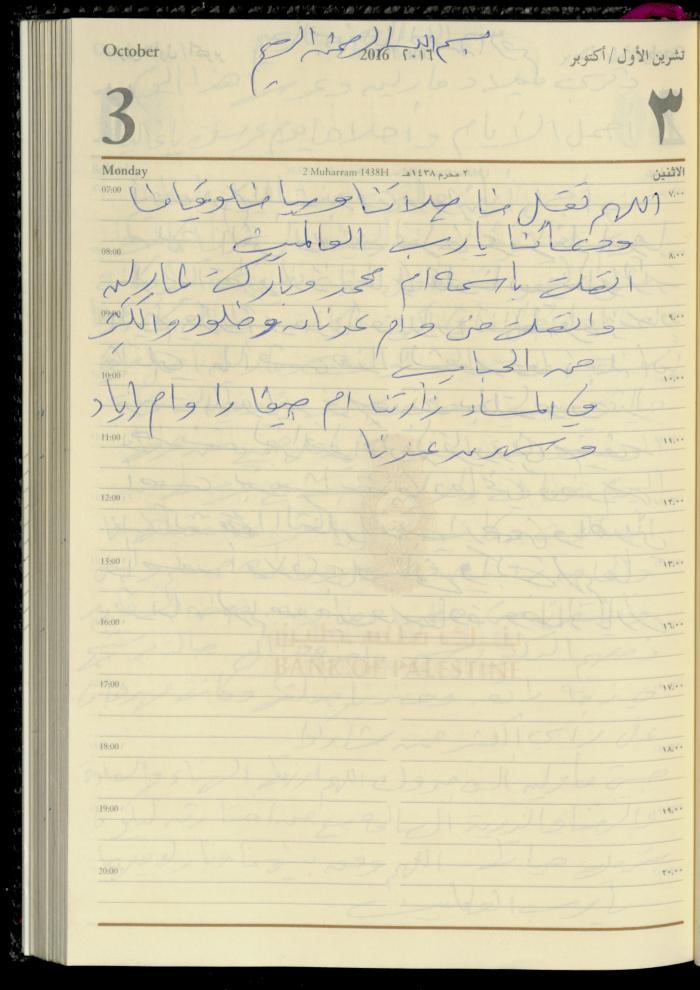 بسم الله الرحمن الرحيم
October 2016 ٢٠١٦ تشرين الأول / أكتوبر
3 ٣
Monday 2 Muharram 1438H ٢ محرم ١٤٣٨هـ الاثنين
07:00 ٧:٠٠
اللهم تقبل منا صلاتنا وصيامنا وقيامنا
ودعائنا يارب العالمين
08:00 ٨:٠٠
اتصلت باسمة ام محمد وباركت لمارلين
09:00 ٩:٠٠
واتصلت منى وام عدنان وخلود والكثير
من الحبايب
10:00 ١٠:٠٠
في المساء زارتنا ام وام اياد
11:00 ١١:٠٠
وسهرت عندنا
12:00 ١٢:٠٠
13:00 ١٣:٠٠
16:00 ١٦:٠٠
BANK OF PALESTINE
17:00 ١٧:٠٠
18:00 ١٨:٠٠
19:00 ١٩:٠٠
20:00 ٢٠:٠٠